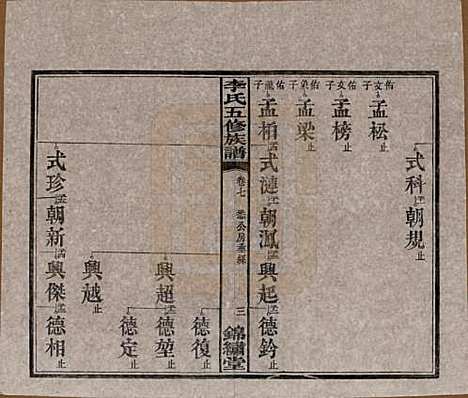 式科 朝規止
佑文子 孟松止
佑文子 孟榜止
佑子 孟梁止
佑龍子 孟柏 式漣 朝鳳 興起 德鈐止
李氏五修族譜 卷七 公房垂絲 三 錦繡堂
德復止
興超 德堃止
德定止
興越止
式珍 朝新 興傑 德相止